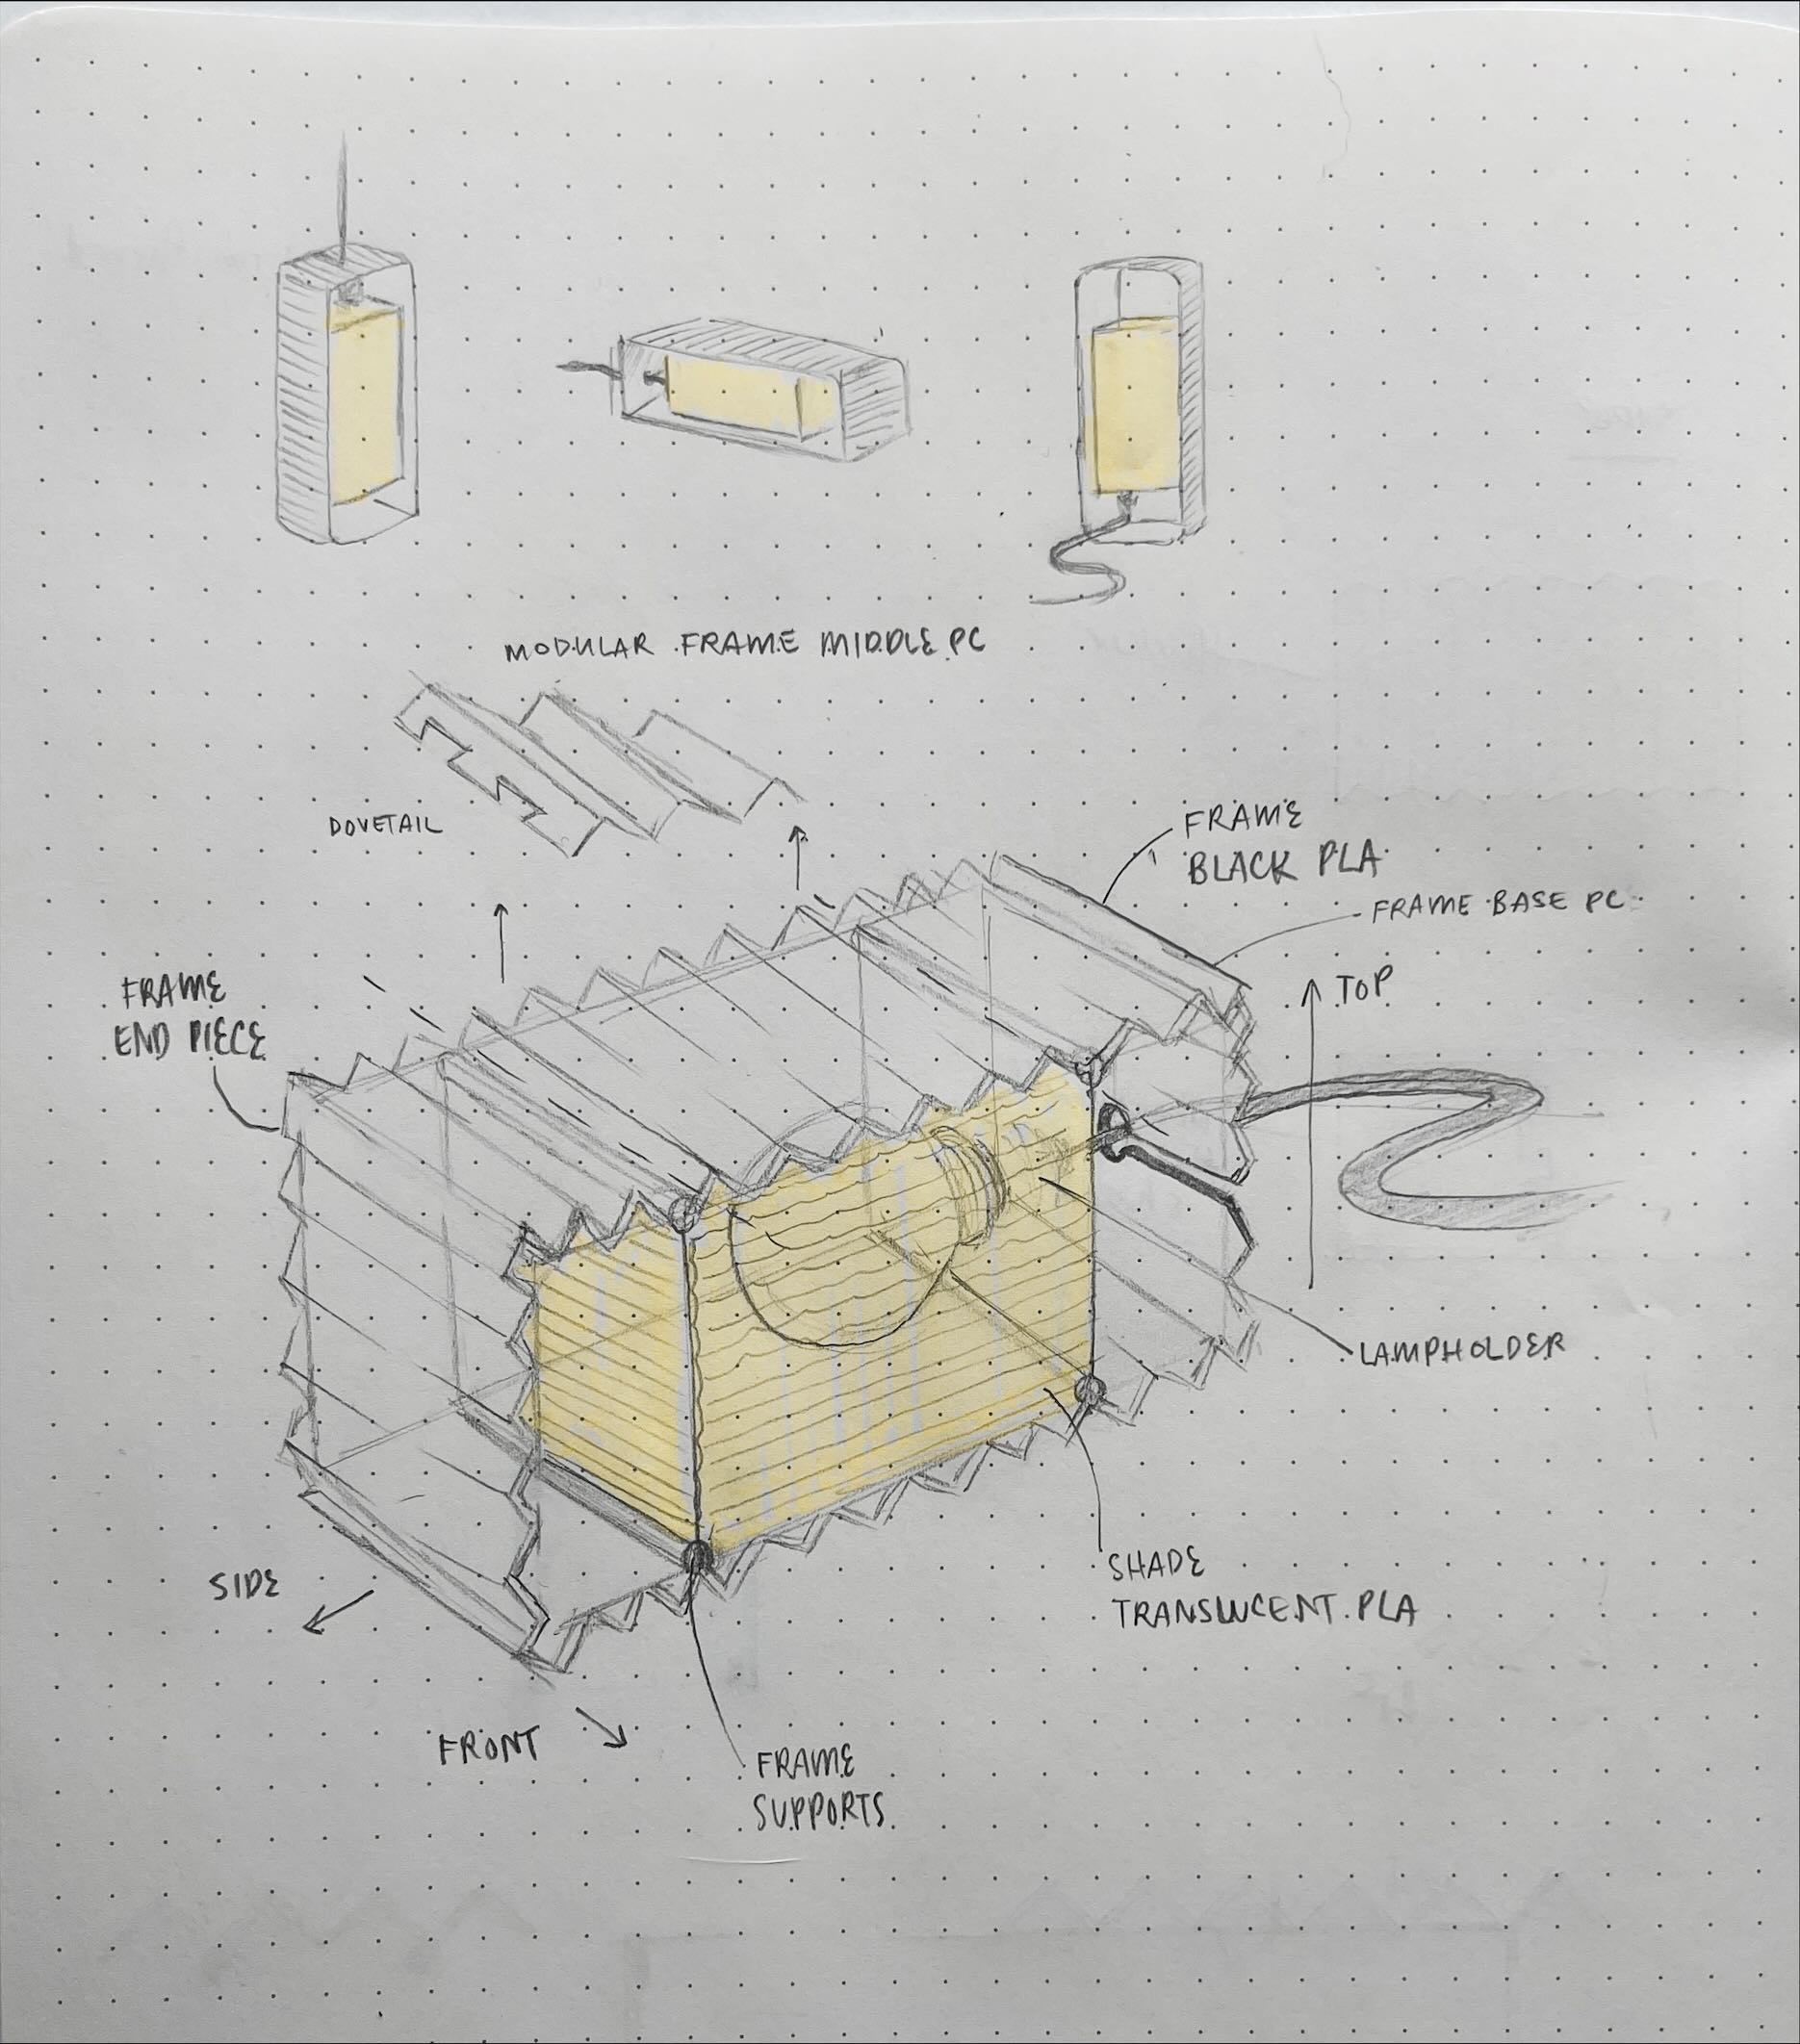 MODULAR FRAME MIDDLE PC
DOVETAIL
FRAME
BLACK PLA
FRAME BASE PC
FRAME
END PIECE
TOP
LAMPHOLDER
SHADE
TRANSLUCENT PLA
SIDE
FRONT
FRAME
SUPPORTS